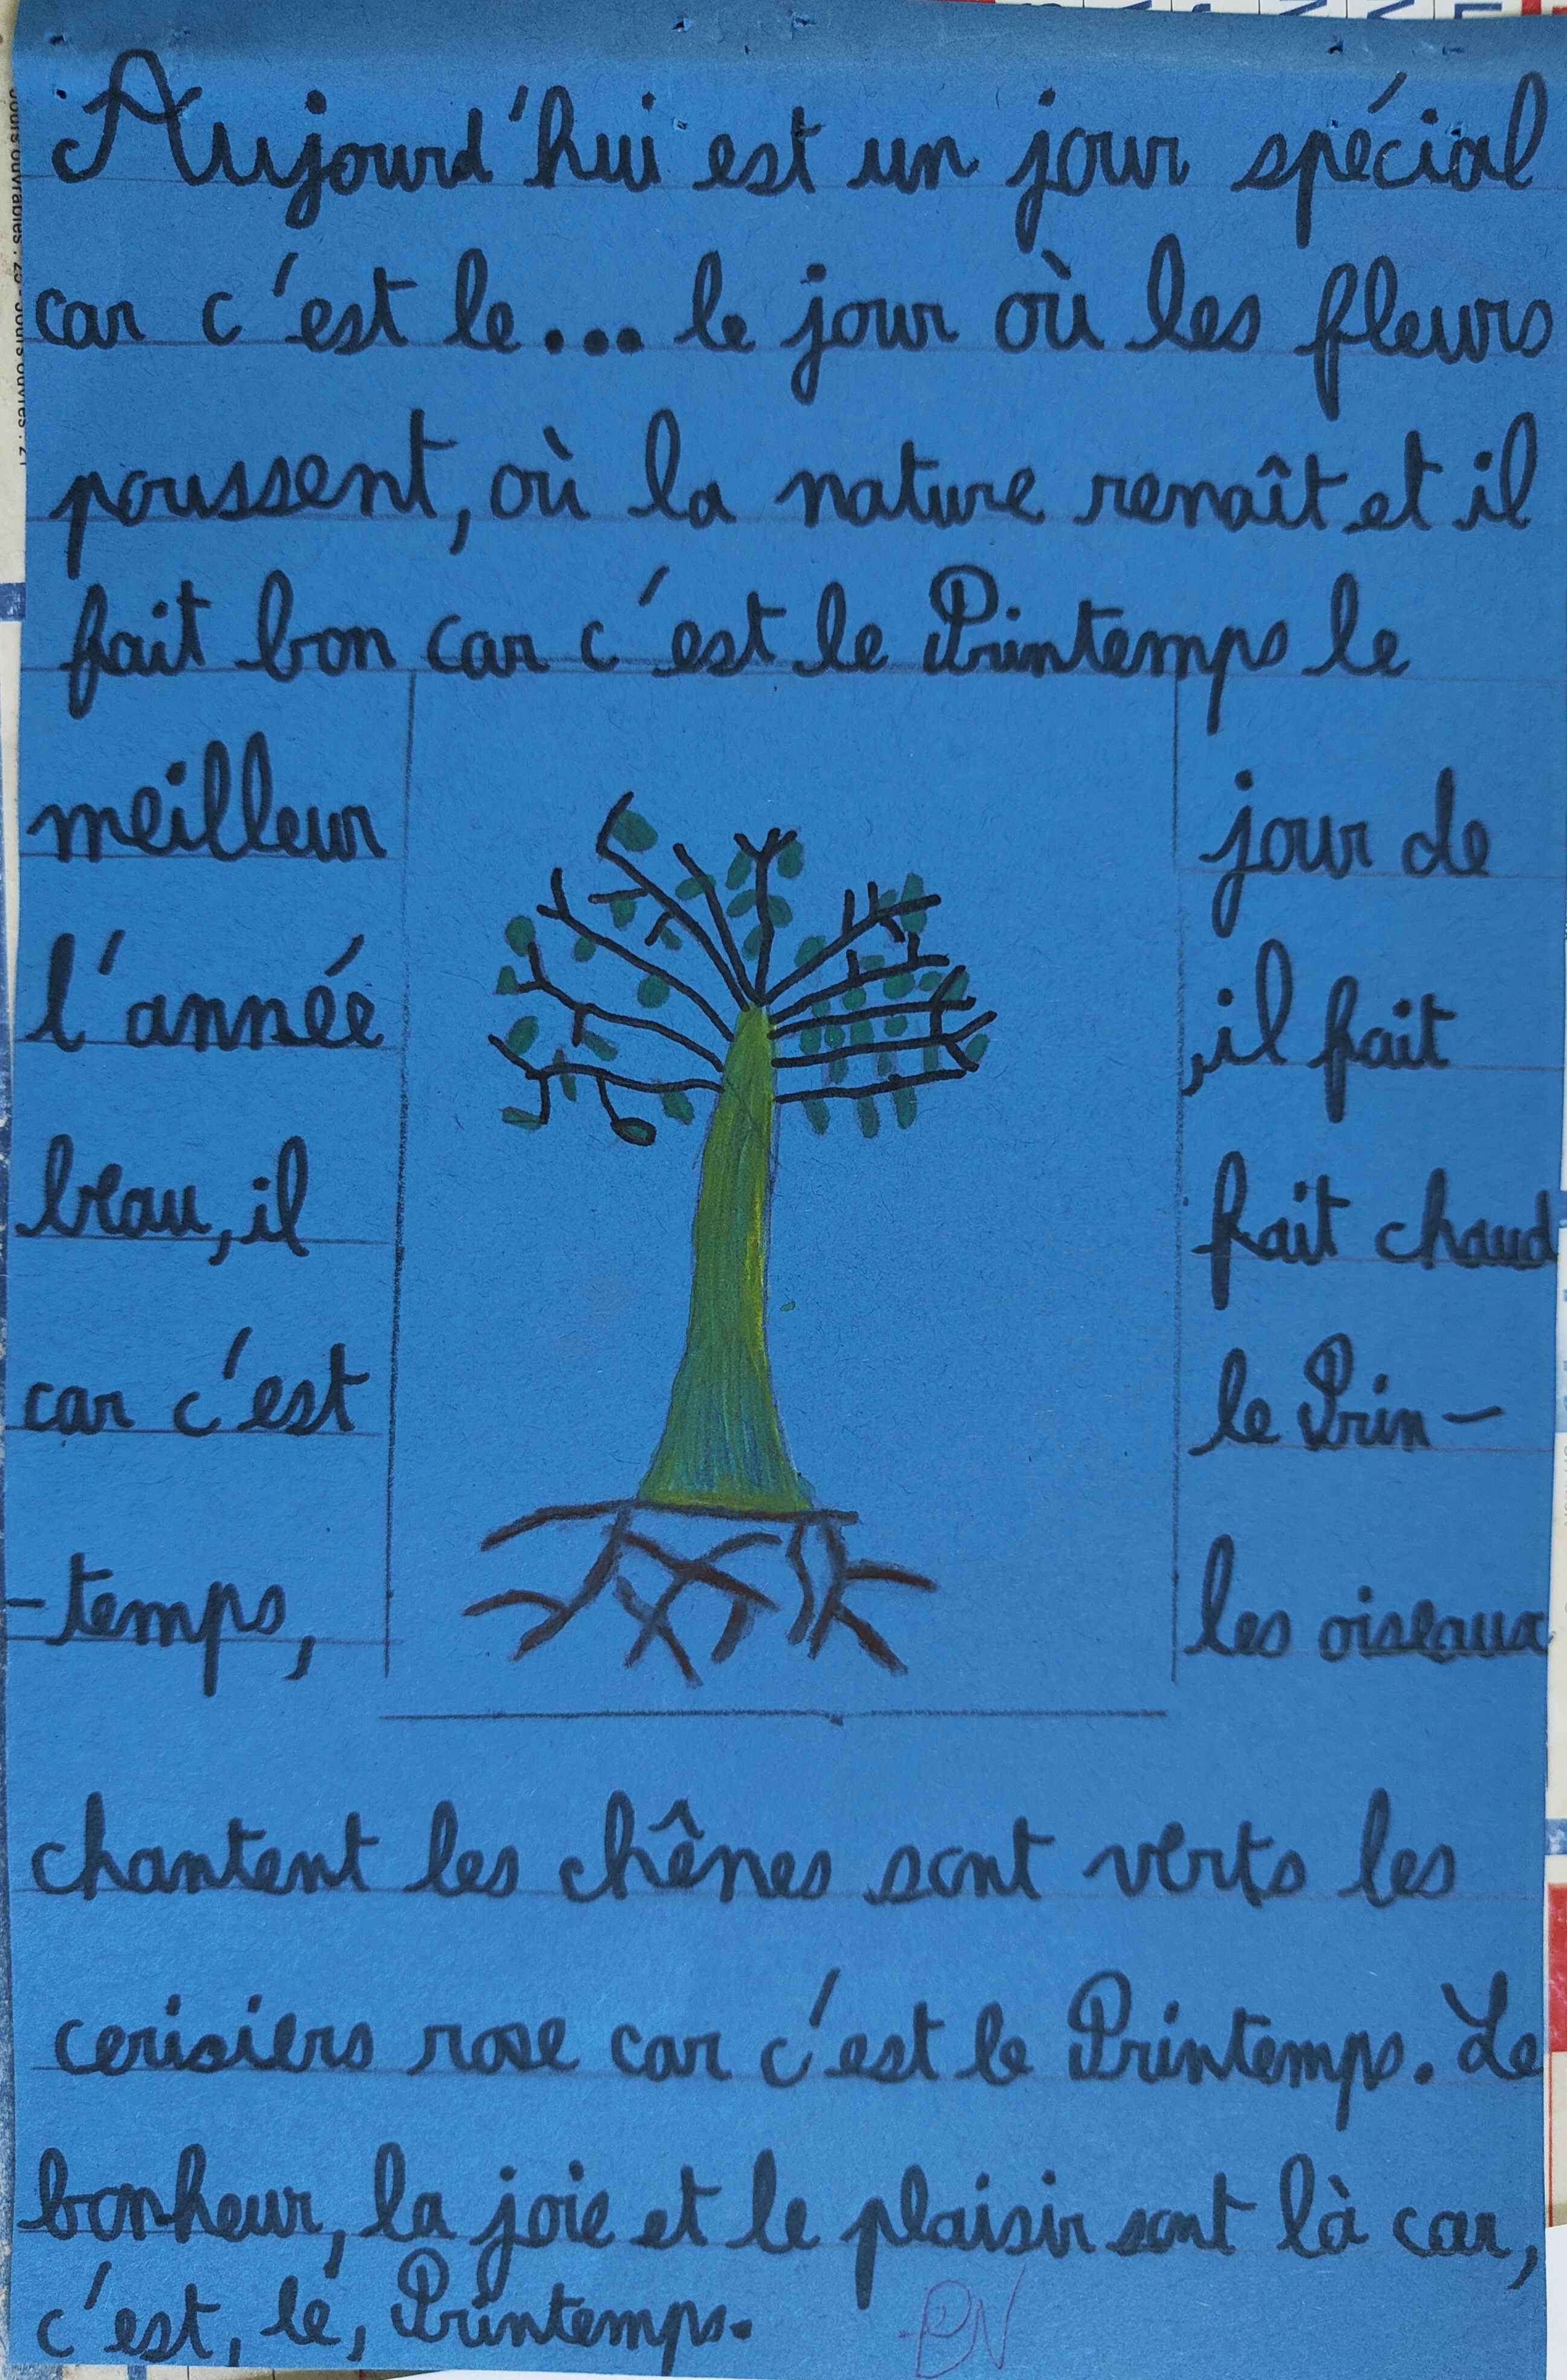 Aujourd'hui est un jour spécial
car c'est le... le jour où les fleurs
poussent, où la nature renaît et il
fait bon car c'est le Printemps le
meilleur jour de
l'année , il fait
beau, il fait chaud
car c'est le Prin-
-temps, les oiseaux
chantent les chênes sont verts les
cerisiers rose car c'est le Printemps. Le
bonheur, la joie et le plaisir sont là car,
c'est, le, Printemps.